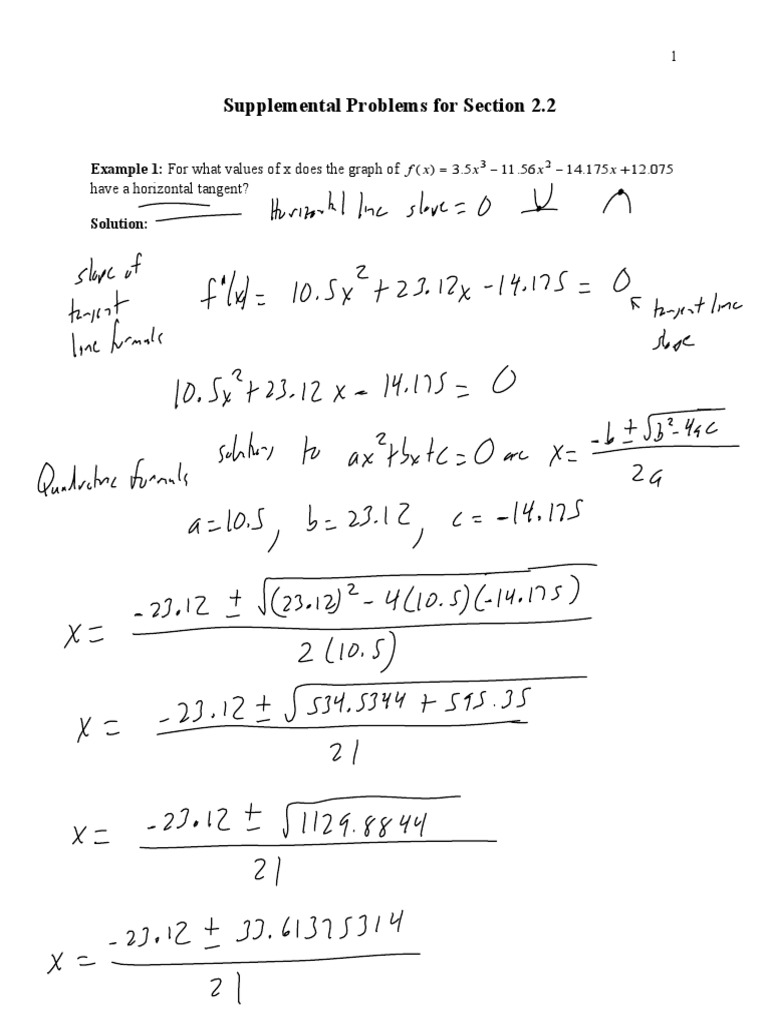 1
Supplemental Problems for Section 2.2
Example 1: For what values of x does the graph of f(x) = 3.5x³ − 11.56x² − 14.175x + 12.075
have a horizontal tangent?
Horizontal line slope = 0
Solution:
slope of
tangent
line formula
f'(x) = 10.5x² + 23.12x - 14.175 = 0
tangent line
slope
10.5x² + 23.12x - 14.175 = 0
Quadratic formula
solutions to ax² + bx + c = 0 are x = (-b ± √(b² - 4ac)) / 2a
a = 10.5, b = 23.12, c = -14.175
x = (-23.12 ± √((23.12)² - 4(10.5)(-14.175))) / 2(10.5)
x = (-23.12 ± √(534.5344 + 595.35)) / 21
x = (-23.12 ± √1129.8844) / 21
x = (-23.12 ± 33.61375314) / 21